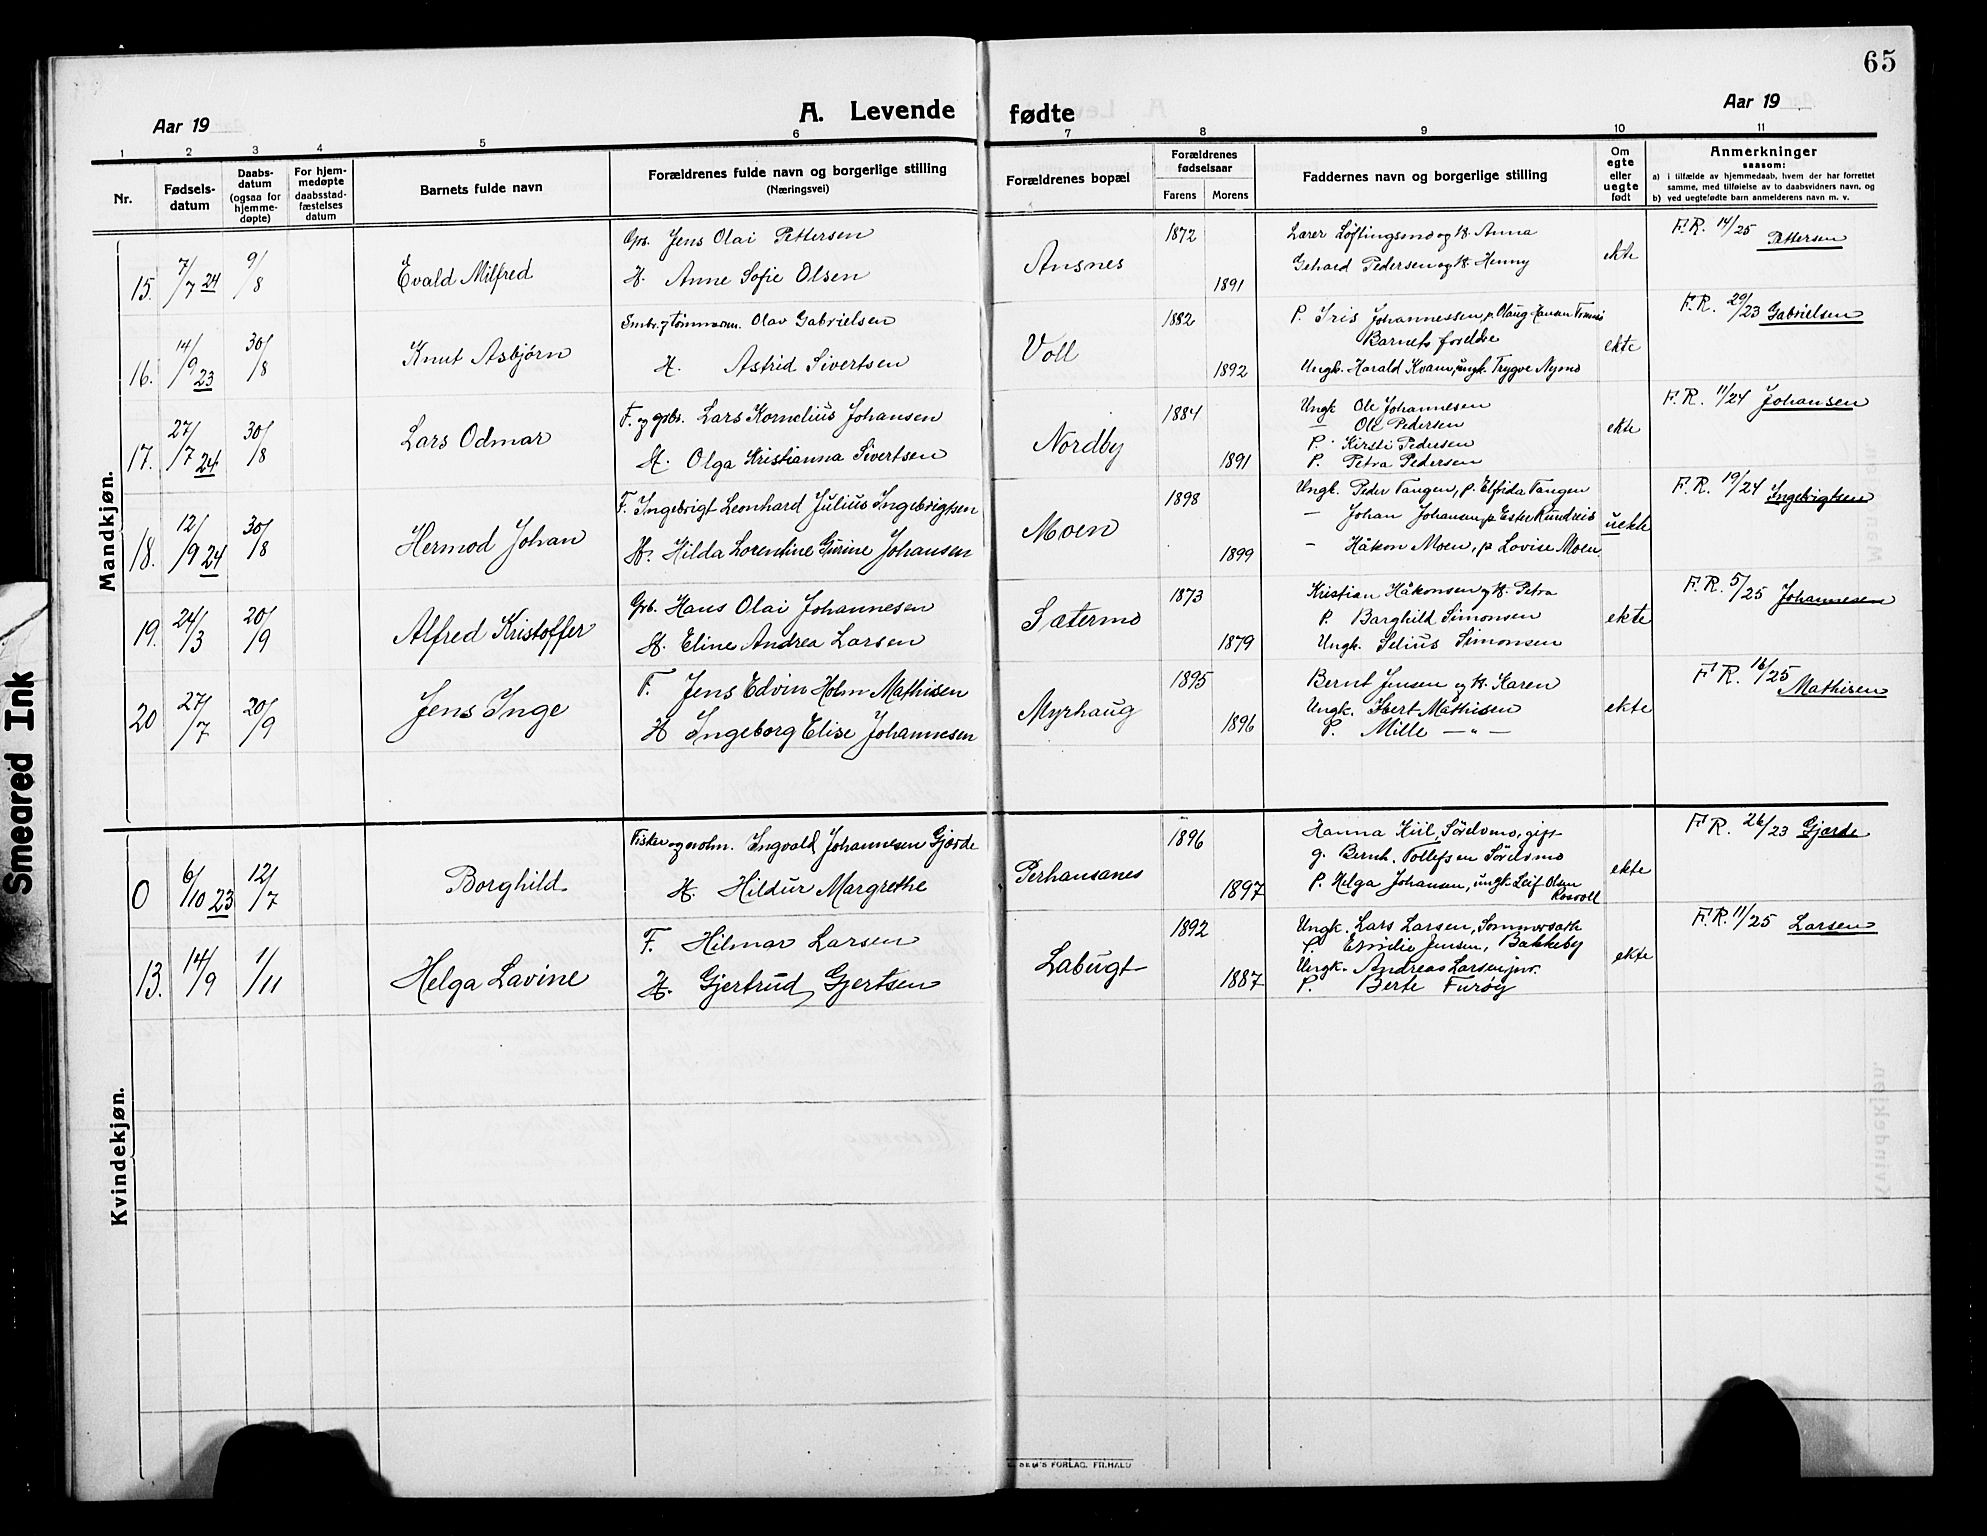 65
Aar 19
A. Levende fødte
Aar 19
1 2 3 4 5 6 7 8 9 10 11
Nr.
Fødsels-
datum
Daabs-
datum
(ogsaa for
hjemme-
døpte)
For hjem-
medøpte
daabsstad-
fæstelses
datum
Barnets fulde navn
Forældrenes fulde navn og borgerlige stilling
(Næringsvei)
Forældrenes bopæl
Forældrenes
fødselsaar
Farens Morens
Faddernes navn og borgerlige stilling
Om
egte
eller
uegte
født
Anmerkninger
saasom:
a) i tilfælde av hjemmedaab, hvem der har forrettet
samme, med tilføielse av to daabsvidners navn, og
b) ved uegtefødte barn anmelderens navn m. v.
Mandkjøn.
15. 7/7 24 9/8
Evald Milfred
Grb. Jens Olai Pettersen
H. Anne Sofie Olsen
Ansnes
1872
1891
Lærer Løftingsmo og H. Anna
Gehard Pedersen og H. Henny
ekte
F.R. 14/25 Pettersen
16. 14/9 23 30/8
Knut Asbjørn
Smbr. og tømmerm. Olav Gabrielsen
H. Astrid Sivertsen
Voll
1882
1892
P. Iris Johannessen, p. Olaug Hansen Tromsø
Barnets foreldre
Ungk. Harald Kvam, ungk. Trygve Nymo
ekte
F.R. 29/23 Gabrielsen
17. 27/7 24 30/8
Lars Odmar
F. og grbr. Lars Kornelius Johansen
H. Olga Kristianna Sivertsen
Nordby
1884
1891
Ungk Ole Johannesen
— Ole Pedersen
P. Kirsti Pedersen
P. Petra Pedersen
ekte
F.R. 11/24 Johansen
18. 12/9 24 30/8
Hermod Johan
F. Ingebrigt Leonhard Julius Ingebrigtsen
H. Hilda Lorentine Gurine Johansen
Moen
1898
1899
Ungk. Peder Tangen, p. Elfrida Tangen
— Johan Johansen, p Ester Rundreis
— Håkon Moen, p Lovise Moen
uekte
F.R. 19/24 Ingebrigtsen
19. 24/3 20/9
Alfred Kristoffer
Grb. Hans Olai Johannesen
H. Eline Andrea Larsen
Sætermo
1873
1879
Kristian Håkonsen og H. Petra
P. Borghild Simonsen
Ungk. Selius Simonsen
ekte
F.R. 5/25 Johannesen
20 27/7 20/9
Jens Inge
F. Jens Edvin Holm Mathisen
H Ingeborg Elise Johannesen
Myrhaug
1895
1896
Bernt Jensen og H. Karen
Ungk. Hbert Mathisen
P. Mille —"—
ekte
F.R. 16/25
Mathisen
Kvindekjøn.
0 6/10 23 12/7
Borghild
Fisker og snolm. Ingvald Johannesen Gjærde
H. Hildur Margrethe
Perhansanes
1896
1897
Hanna Kiil, Sørelvmo, gift
g. Bernh. Tollefsen Sørelvmo
P. Helga Johansen, ungk. Leif Olsen
Rosvoll
ekte
F.R. 26/23 Gjærde
13. 14/9 1/11
Helga Lavine
F. Hilmar Larsen
H. Gjertrud Gjertsen
Labugt
1892
1887
Ungk. Lars Larsen, Sommersæth
P. Emilie Jensen, Bakkeby
Ungk. Andreas Larsen jnr.
P. Berte Furøy
ekte
F.R. 11/25 Larsen
SEM'S FORLAG. FR.HALD
Smeared Ink